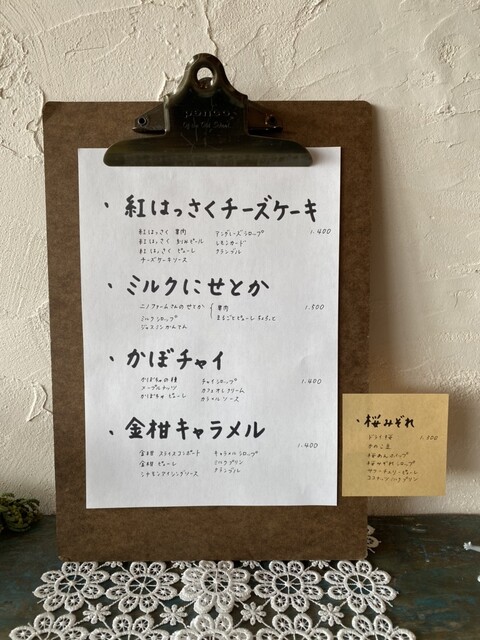 penco
・紅はっさくチーズケーキ
紅はっさく 果肉 アングレーズシロップ 1.400
紅はっさく ピール レモンカード
紅はっさく ピューレ クランブル
チーズケーキソース
・ミルクにせとか
ニノファームさんのせとか 果肉 1.500
ミルクシロップ まるごとピューレ
ジャスミンかんてん
・かぼチャイ
かぼちゃの種 チャイシロップ 1.400
メープルナッツ カフェオレクリーム
かぼちゃ ピューレ カラメルソース
・金柑キャラメル
金柑 スライスコンポート キャラメルシロップ 1.400
金柑 ピューレ ミルクプリン
シナモンアイシングソース クランブル
・桜みぞれ
ドライ桜
桜あんホイップ
桜みぞれシロップ
サワーチェリーピューレ
ココナッツハーブプリン